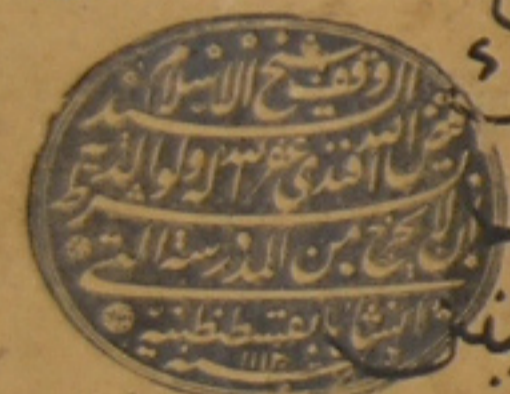 وقف شيخ الاسلام السيد
فيض الله افندى غفر الله له ولوالديه بشرط
ان لا يخرج من المدرسة التى
انشأها بقسطنطينية
سنة ١١١٣